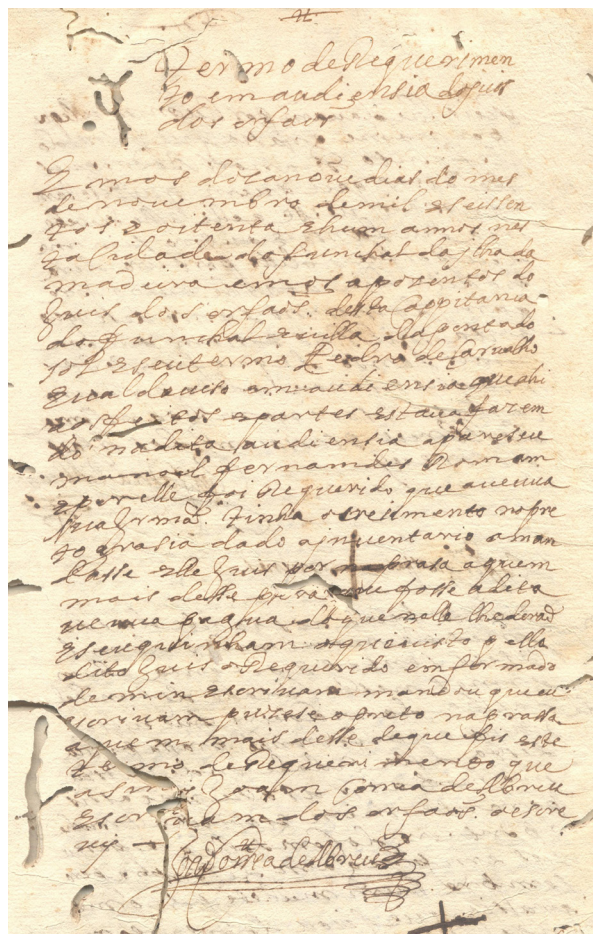 termo de Requerimen
to em audiensia do juis
dos orfaos
E mos dozanove dias do mes
de novembro de mil e seissen
tos e oitenta e hum annos nes
ta Cidade do funchal da jlha da
madeira em os apozentos do
Juis dos orfaos desta Capitania
do funchal e villa da ponta do
sol e seu termo Pedro de Carvalho
e valdaveso em audiensia que ahi
aos feitos e partes estava fazem
do na dita audiensia apareseu
manoel fernandes Romam
e por elle foi Requerido que a veuva
sua Irmã tinha o cresimento no pre
to grasia dado a jnventario aman
dasse elle Juis por na prasa a quem
mais desse para que fosse a dita
veuva paga do que nelle lhe
e seu quinham o que visto pello
dito Juis o Requerido emformado
de mim escrivam mandou que eu
escrivam puzese o preto na prassa
a quem mais desse de que fis este
termo de Requerimento que
asinou Joam Correa de Abreu
escrivam dos orfaos o escre
vy
Correa de Abreu